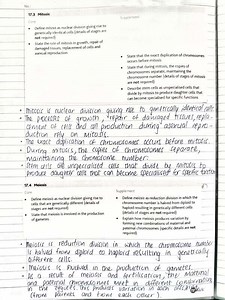 17.3 Mitosis
Core
Supplement
• Define mitosis as nuclear division giving rise to
genetically identical cells (details of stages are
not required)
• State the role of mitosis in growth, repair of
damaged tissues, replacement of cells and
asexual reproduction
• State that the exact duplication of chromosomes
occurs before mitosis
• State that during mitosis, the copies of
chromosomes separate, maintaining the
chromosome number (details of stages of mitosis
are not required)
• Describe stem cells as unspecialised cells that
divide by mitosis to produce daughter cells that
can become specialised for specific functions
• Mitosis is nuclear division giving rise to genetically identical cells
• The process of growth, repair of damaged tissues, repla-
cement of cells and cell production during asexual repro-
duction rely on mitosis.
• The exact duplication of chromosomes occurs before mitosis.
• During mitosis, the copies of chromosomes separate,
maintaining the chromosome number.
• Stem cells are unspecialised cells that divide by mitosis to
produce daughter cells that can become specialised for specific functions
17.4 Meiosis
Core
Supplement
• Define meiosis as nuclear division giving rise to
cells that are genetically different (details of
stages are not required)
• State that meiosis is involved in the production
of gametes
• Define meiosis as reduction division in which the
chromosome number is halved from diploid to
haploid resulting in genetically different cells
(details of stages are not required)
• Explain how meiosis produces variation by
forming new combinations of maternal and
paternal chromosomes (specific details are not
required)
• Meiosis is reduction division in which the chromosome number
is halved from diploid to haploid resulting in genetically
different cells.
• Meiosis is involved in the production of gametes.
• As a result of meiosis and fertilisation, the maternal
and paternal chromosomes meet in different combinations
in the zygotes
from parents and being each other